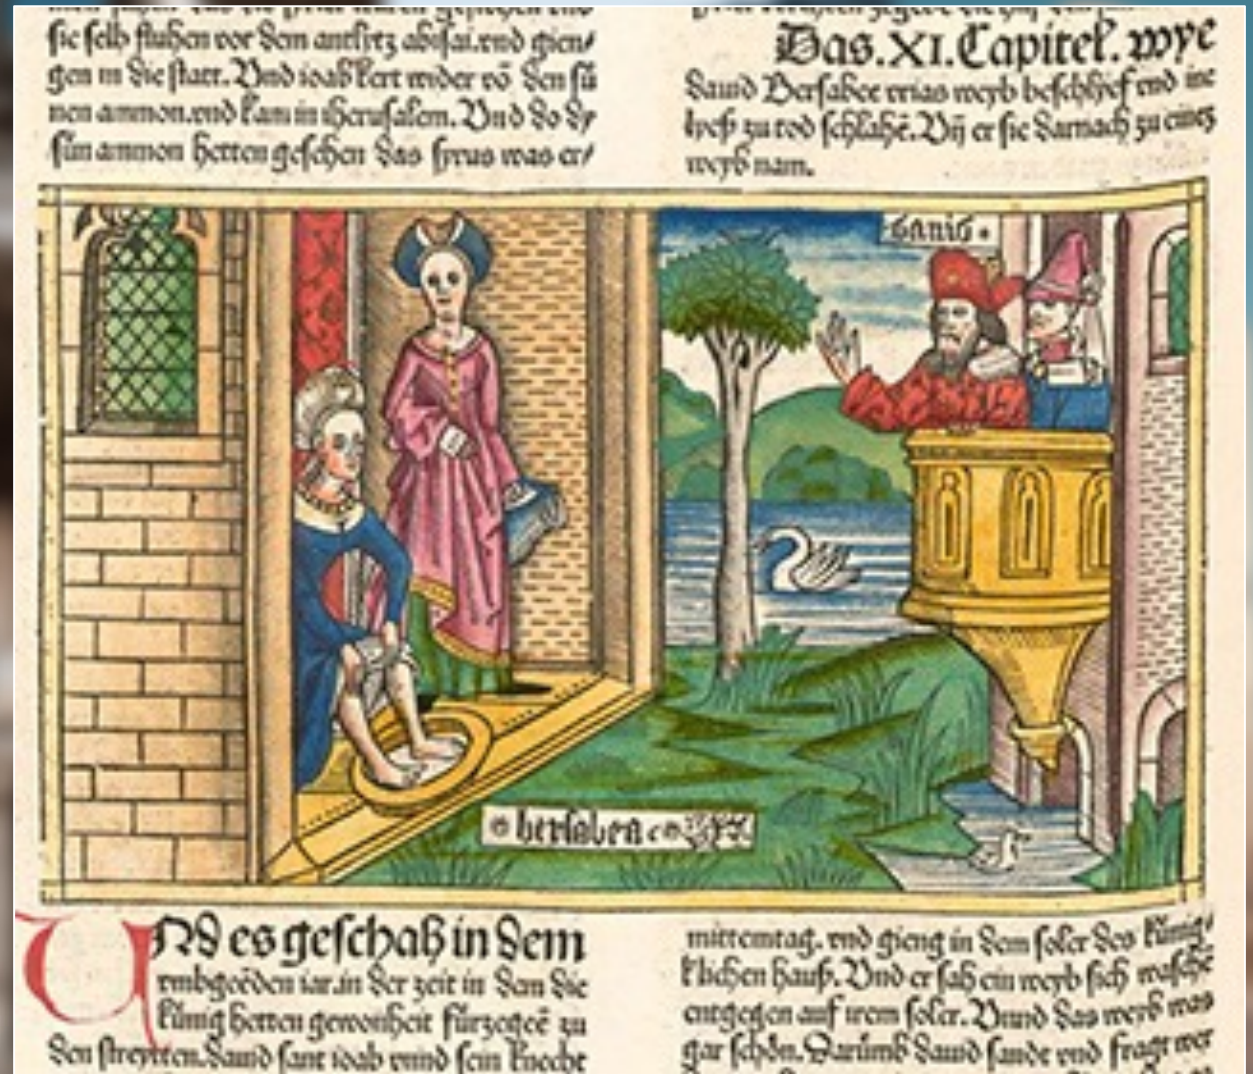 sie selb fluhen vor dem antlytz abisai.vnd gien/
gen in die statt.Vnd ioab kert wider võ den sü
nen ammon.vnd kam in iherusalem.Vnd do dy
sün ammon hetten gesehen das syrus was er/
Das.XI.Capitel.wye
dauid Bersabee vrias weyb beschlyef vnd ine
lyeß zu tod schlahẽ.Vñ er sie darnach zu einez
weyb nam.
dauid
bersabea
VNd es geschah in dem
vmbgeeden iar.in der zeit in dem die
künig hetten gewonheit fürzegeẽ zu
den streytten.dauid sant ioab vnnd sein knecht
mittemtag.vnd gieng in dem soler des künig/
klichen hauß.Vnd er sah ein weyb sich waschẽ
entgegen auf irem soler.Vnnd das weyb was
gar schön.Darumb dauid sande vnd fragt wer